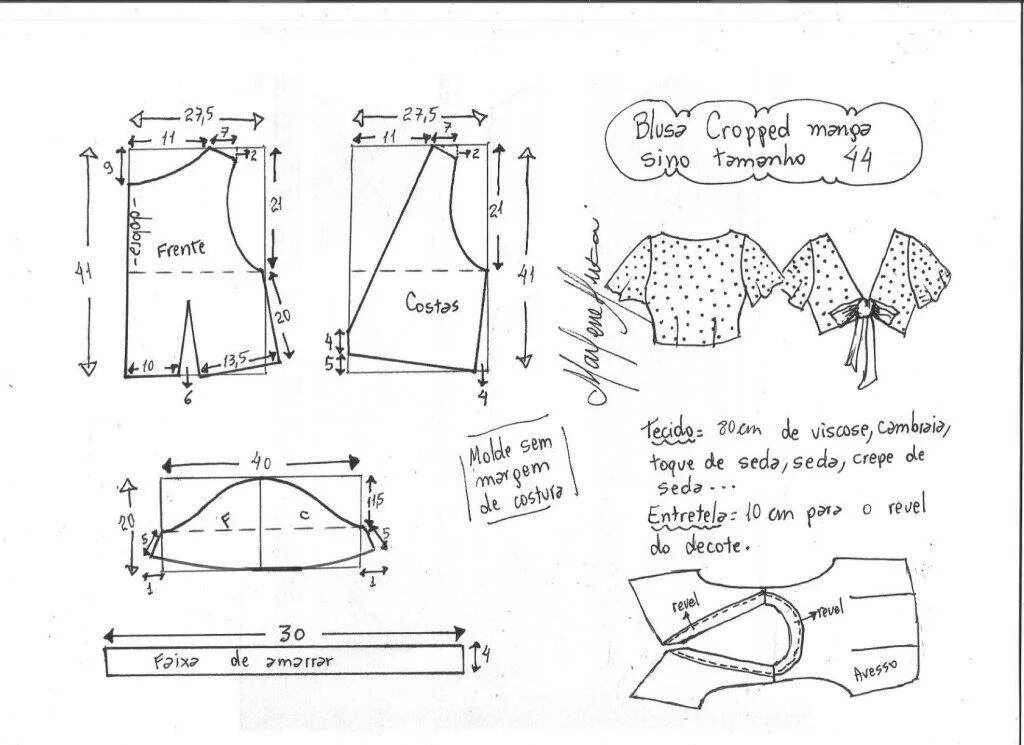 Blusa Cropped manga
sino tamanho 44
27,5
11
7
2
9
21
-dobra-
Frente
41
20
10
13,5
6
27,5
11
7
2
21
41
Costas
4
5
4
Marlene Mukai.
Molde sem
margem
de costura
Tecido= 80cm de viscose, cambraia,
toque de seda, seda, crepe de
seda...
Entretela= 10 cm para o revel
do decote.
40
20
11,5
F
C
5
5
1
1
30
Faixa de amarrar
4
revel
revel
Avesso